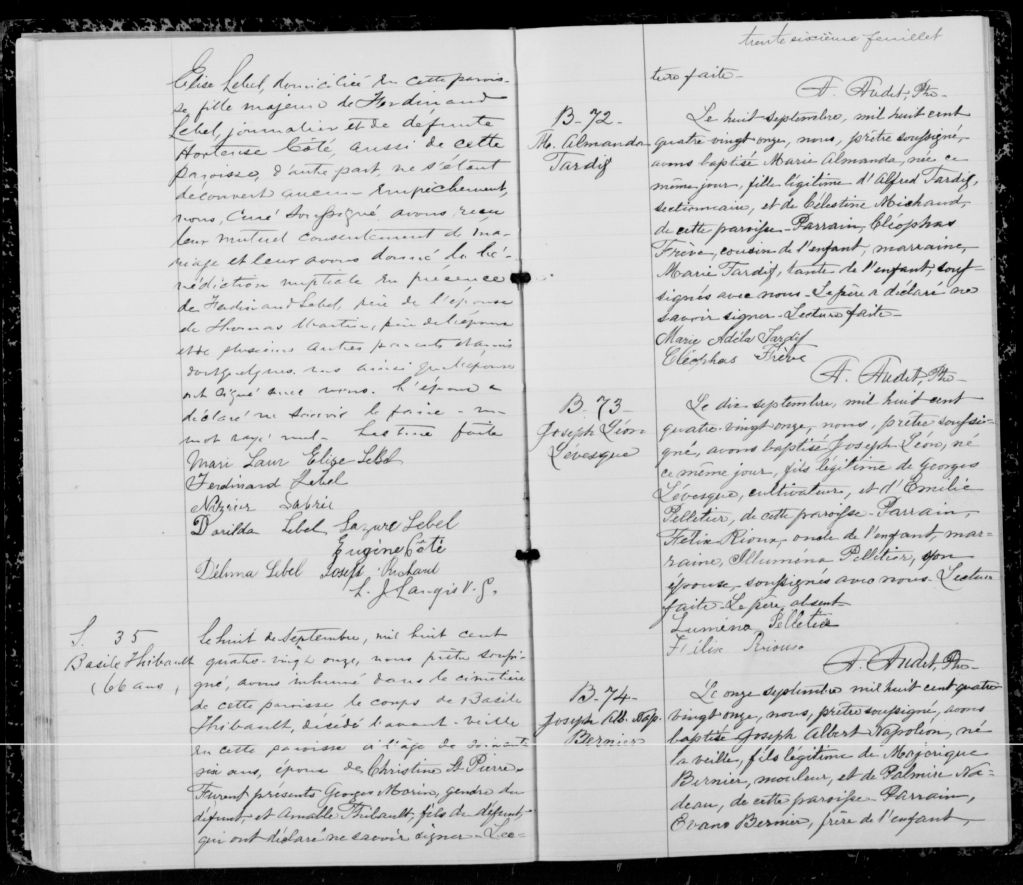 Elise Lebel, domiciliée en cette parois-
se, fille majeure de Ferdinand
Lebel, journalier et de defunte
Hortense Côté, aussi de cette
paroisse, d'autre part, ne s'étant
découvert aucun empêchement,
nous, Curé soussigné avons reçu
leur mutuel consentement de ma-
riage et leur avons donné la bé-
nédiction nuptiale en présence
de Ferdinand Lebel, père de l'épouse
de Thomas Martin, père de l'époux
et de plusieurs autres parents et amis
dont quelques uns ainsi que l'épouse
ont signé avec nous. L'époux a
déclaré ne savoir le faire - un
mot rayé nul - Lecture faite
Mari Laur Elise Lebel
Ferdinand Lebel
Dorilda Lebel Lazare Lebel
Eugène Côté
Délima Lebel Joseph Richard
L. J. Langis V. G.
S. 35
Basile Thibault
(66 ans)
Le huit de Septembre, mil huit cent
quatre-vingt onze, nous prêtre soussi-
gné, avons inhumé dans le cimetière
de cette paroisse le corps de Basile
Thibault, décédé l'avant-veille
en cette paroisse à l'âge de soixante
six ans, époux de Christine St Pierre.
Furent présents Georges Morin, gendre du
défunt et Amable Thibault, fils du défunt,
qui ont déclaré ne savoir signer - Lec-
trente sixième feuillet
ture faite -
A. Audet, Ptre -
B-72-
M. Almanda
Tardif
Le huit septembre, mil huit cent
quatre vingt onze, nous, prêtre soussigné,
avons baptisé Marie Almanda, née ce
même jour, fille légitime d'Alfred Tardif,
sectionnaire, et de Célestine Michaud,
de cette paroisse - Parrain, Cléophas
Frève, cousin de l'enfant, marraine,
Marie Tardif, tante de l'enfant, sous-
signés avec nous - Le père a déclaré ne
savoir signer - Lecture faite -
Marie Adéla Tardif
Cléophas Frève
A. Audet, Ptre -
B. 73 -
Joseph Léon
Levesque
Le dix septembre, mil huit cent
quatre-vingt onze, nous, prêtre soussi-
gné, avons baptisé Joseph Léon, né
ce même jour, fils légitime de Georges
Lévesque, cultivateur, et d'Emilie
Pelletier, de cette paroisse - Parrain,
Félix Rioux, oncle de l'enfant, mar-
raine, Illuména Pelletier, son
épouse, soussignés avec nous - Lecture
faite - Le père, absent
Lumena Pelletier
Félix Rioux
A. Audet, Ptre -
B-74-
Joseph Alb. Nap.
Bernier
Le onze septembre mil huit cent quatre-
vingt onze, nous, prêtre soussigné, avons
baptisé Joseph Albert Napoléon, né
la veille, fils légitime de Majorique
Bernier, mouleur, et de Palmire Na-
deau, de cette paroisse - Parrain,
Evans Bernier, frère de l'enfant,